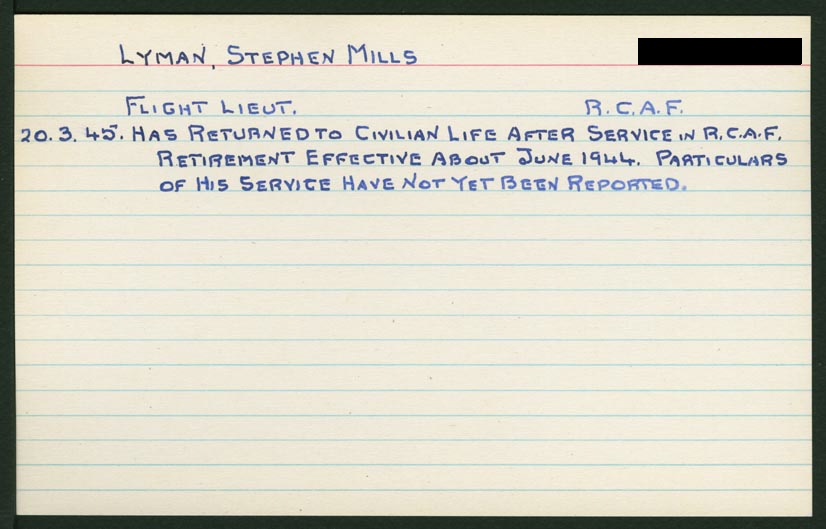 LYMAN, STEPHEN MILLS
FLIGHT LIEUT. R.C.A.F.
20.3.45. HAS RETURNED TO CIVILIAN LIFE AFTER SERVICE IN R.C.A.F.
RETIREMENT EFFECTIVE ABOUT JUNE 1944. PARTICULARS
OF HIS SERVICE HAVE NOT YET BEEN REPORTED.